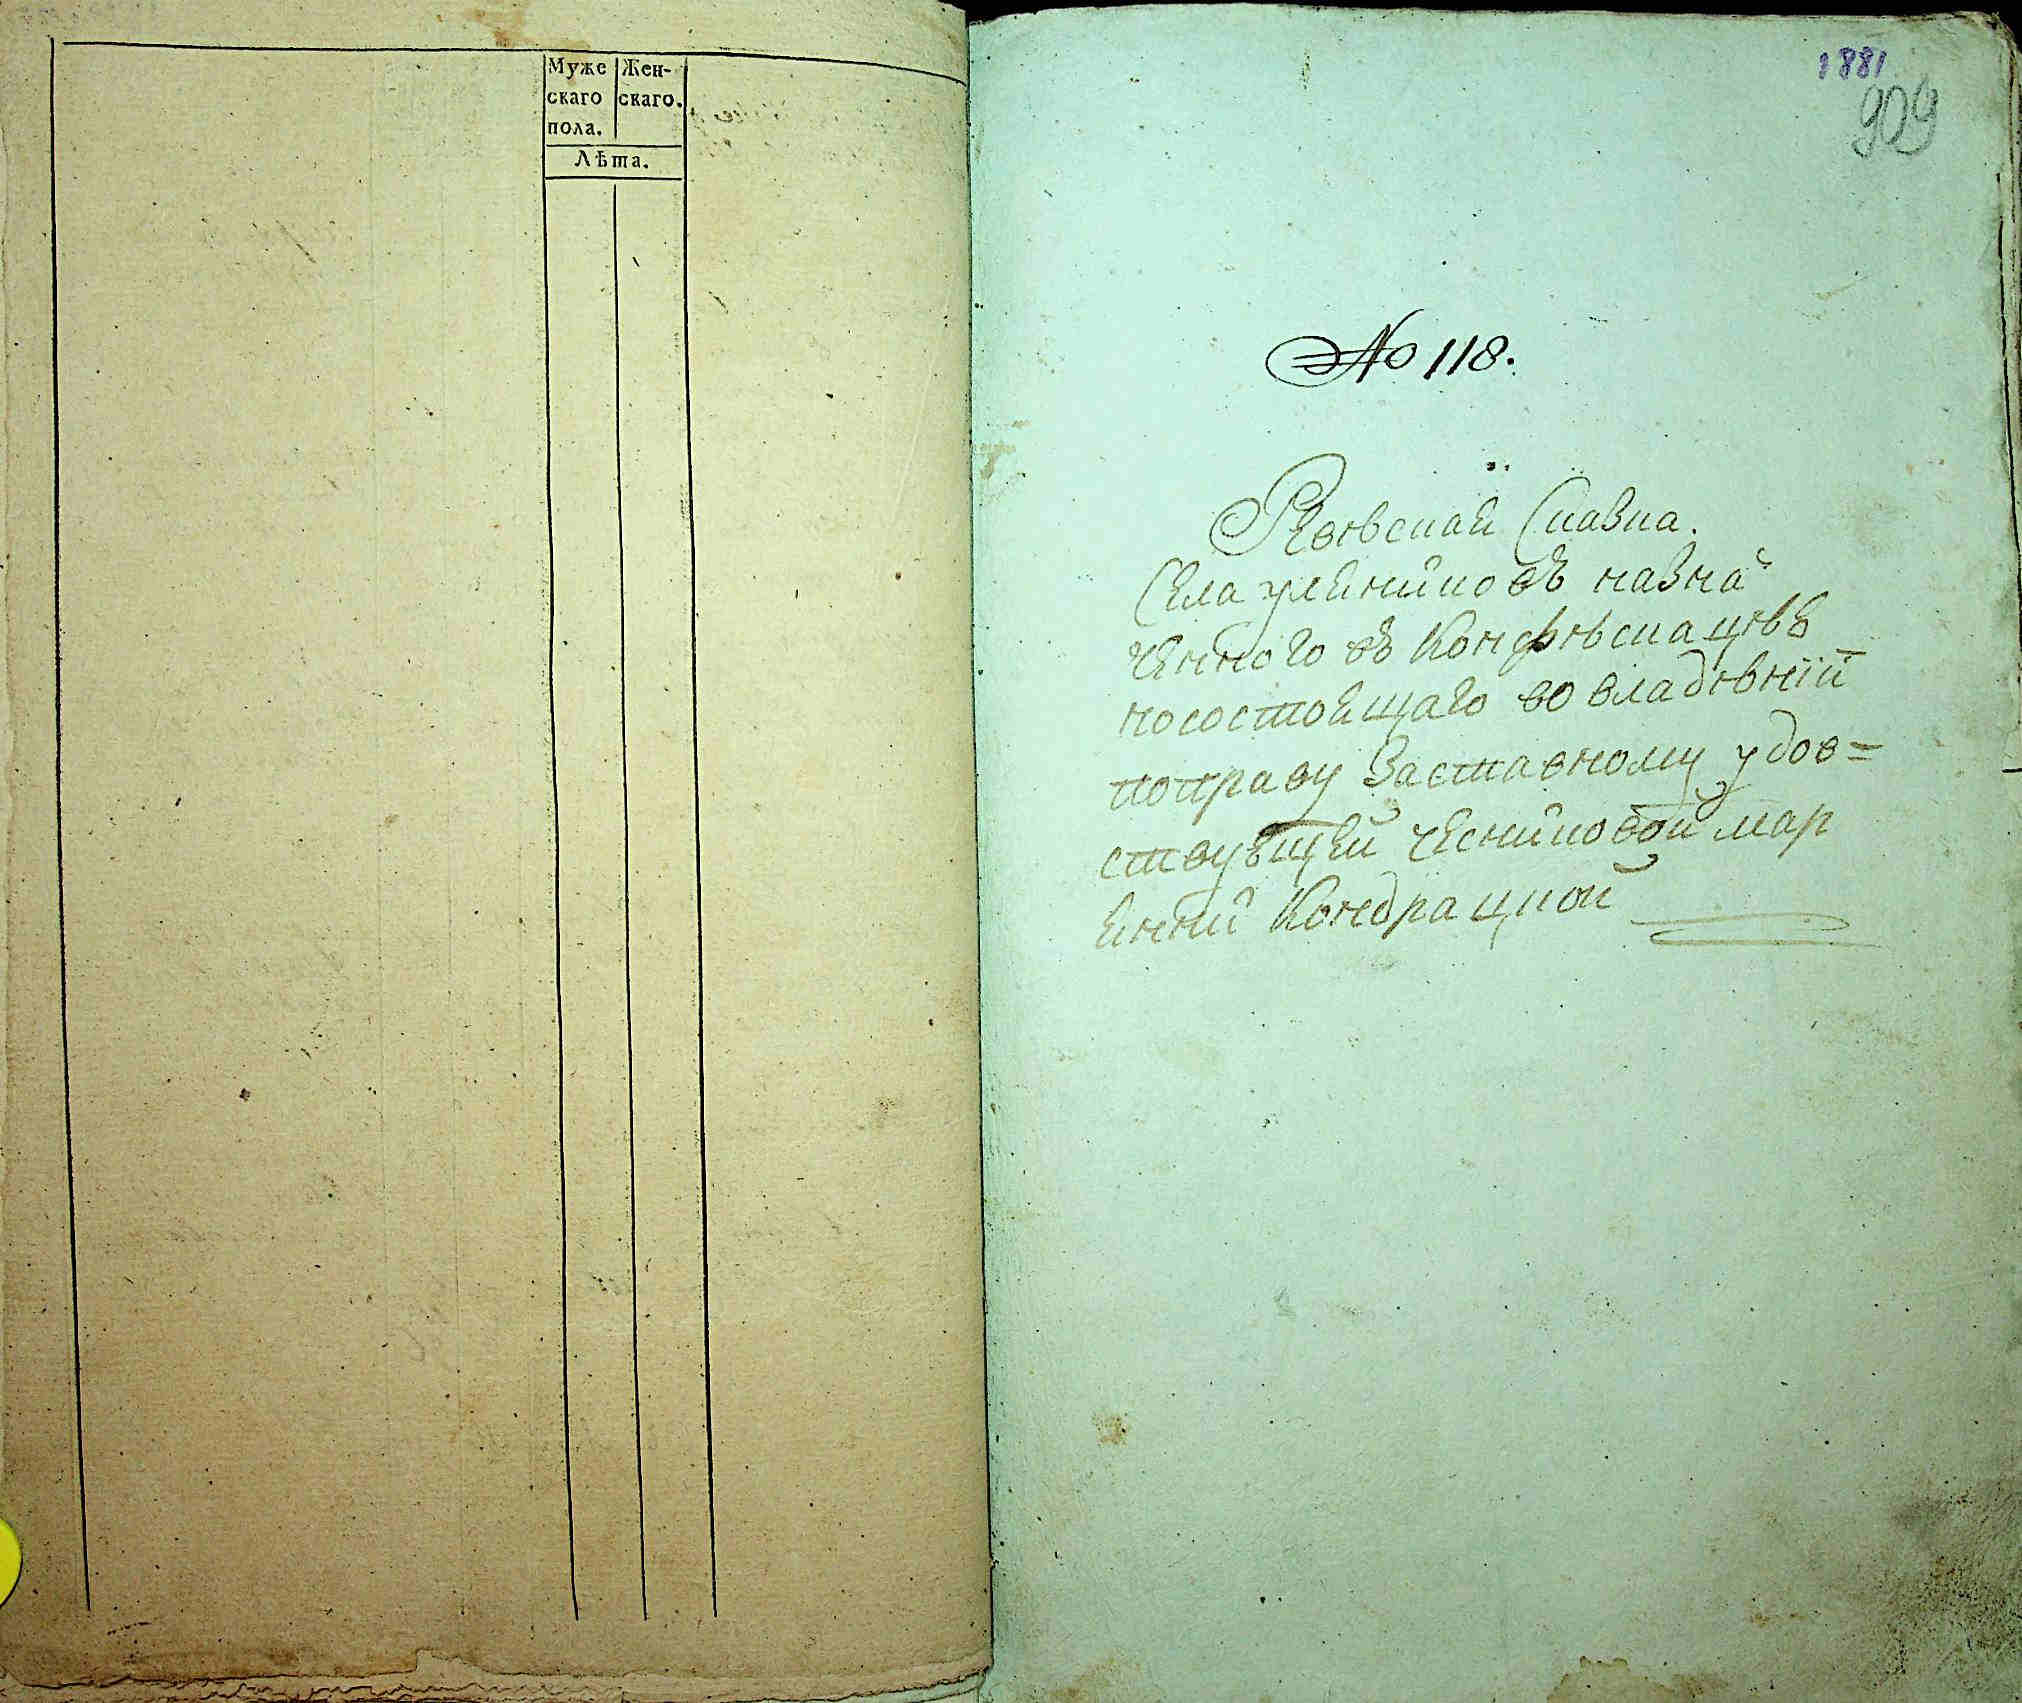 Муже
скаго
пола.
Жен-
скаго.
Лѣта.
1881
909
№ 118.
Ревѣскаѧ Сказка.
Села улѧникоɞъ назна
ченного въ Конфѣскацѣѣ
но состоѧщаго во владѣніи
по праву заставному у дов=
ствуѣщей чесниковой мар
ѧнни Кондрацкой